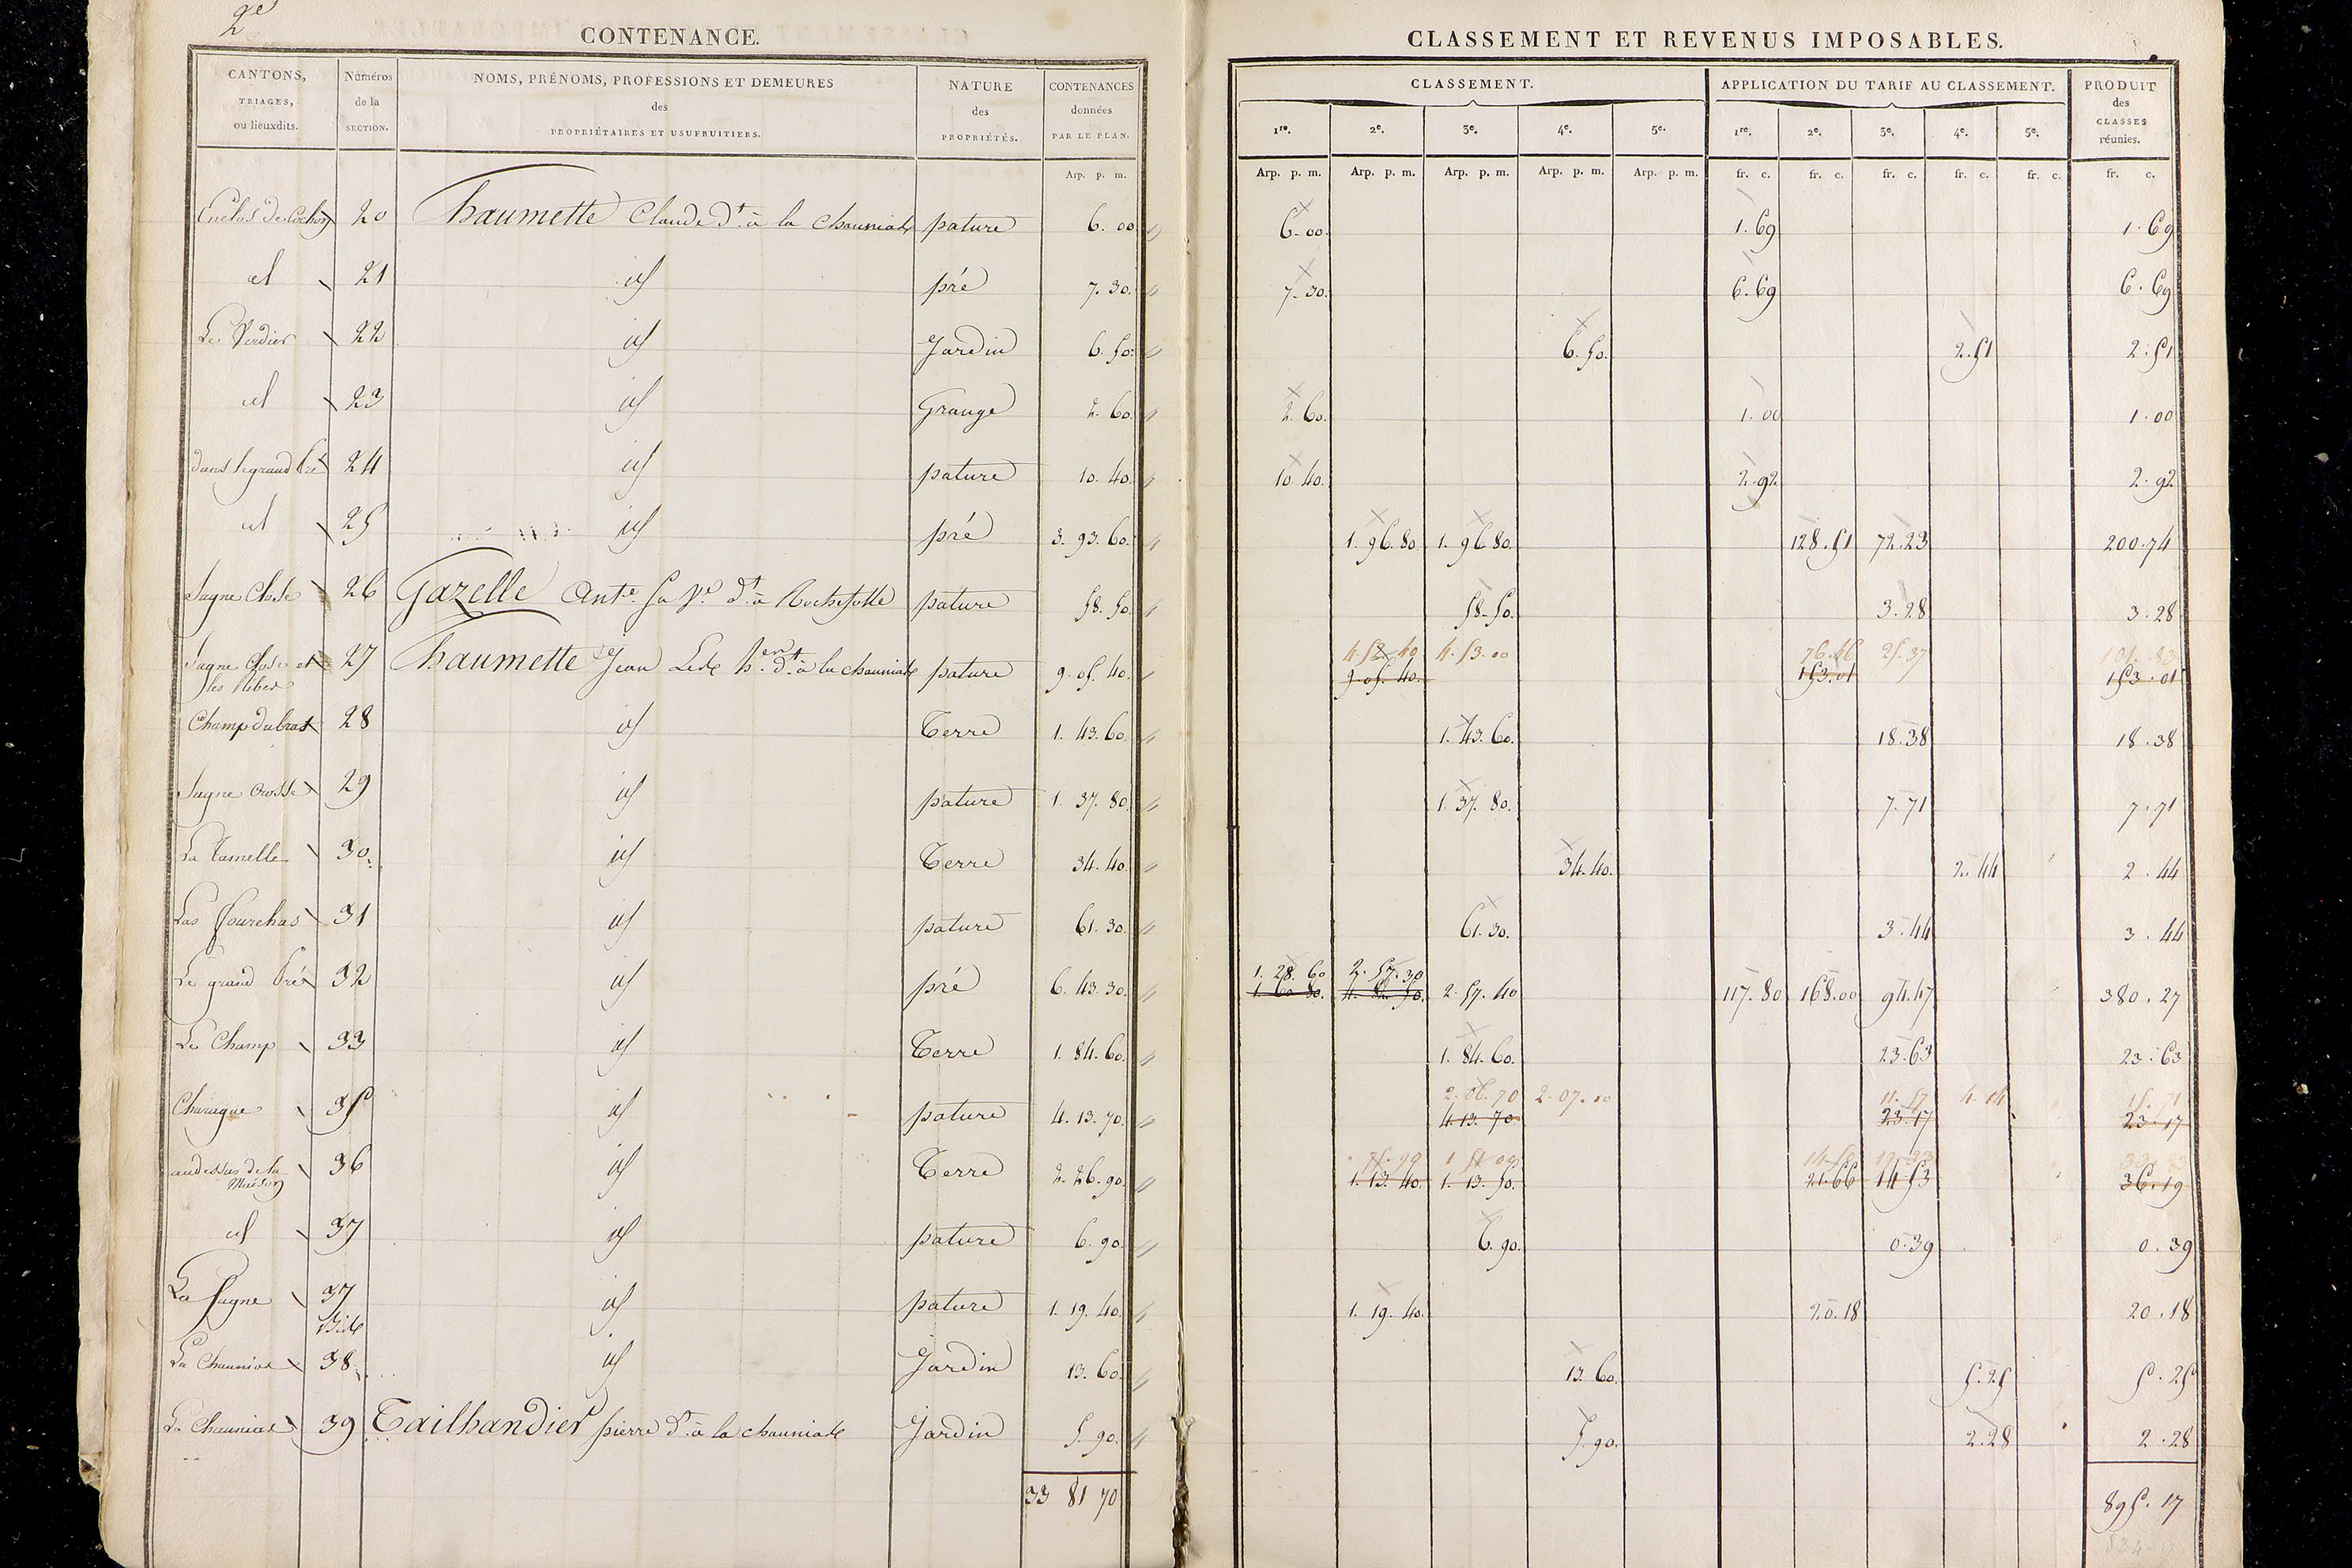 2e
CONTENANCE.
CANTONS, TRIAGES, ou lieuxdits. | Numéros de la SECTION. | NOMS, PRÉNOMS, PROFESSIONS ET DEMEURES des PROPRIÉTAIRES ET USUFRUITIERS. | NATURE des PROPRIÉTÉS. | CONTENANCES données PAR LE PLAN.
Arp. p. m.
Enclos de Cochon 20 Chaumette Claude dt. à la chauniade pature 6. 00
id 21 id pré 7. 30.
Le Verdier 22 id Jardin 6. 50.
id 23 id Grange 2. 60.
dans le grand Pré 24 id pature 10. 40.
id 25 id pré 3. 93. 60.
Sagne Close 26 Gazelle Ante. sa ve. dt. à Rochefolle pature 58. 50.
Sagne Close et les 27 Chaumette Jean dt. à la chauniade pature 9. 05. 40.
Champ du bras 28 id Terre 1. 43. 60.
Sagne 29 id pature 1. 37. 80.
La 30. id Terre 34. 40.
Las Fourchas 31 id pature 61. 30.
Le grand Pré 32 id pré 6. 43. 30.
Le Champ 33 id Terre 1. 84. 60.
35 id pature 4. 13. 70.
au dessus de la Maison 36 id Terre 2. 26. 90.
id 37 id pature 6. 90.
La Sagne 37 Bis id pature 1. 19. 40.
La Chauniade 38. id Jardin 13. 60.
La Chauniade 39 Tailhandier pierre dt. à la chauniade Jardin 5. 90.
33 81 70
CLASSEMENT ET REVENUS IMPOSABLES.
CLASSEMENT. | APPLICATION DU TARIF AU CLASSEMENT. | PRODUIT des CLASSES réunies.
1re. 2e. 3e. 4e. 5e. 1re. 2e. 3e. 4e. 5e.
Arp. p. m. Arp. p. m. Arp. p. m. Arp. p. m. Arp. p. m. fr. c. fr. c. fr. c. fr. c. fr. c. fr. c.
6. 00. 1. 69 1. 69
7. 30. 6. 69 6. 69
6. 50. 2. 51 2. 51
2. 60. 1. 00 1. 00
10. 40. 2. 92 2. 92
1. 96. 80. 1. 96. 80. 128. 51 72. 23 200. 74
58. 50. 3. 28 3. 28
4. 52. 40 4. 53. 00 76. 46 25. 37 101. 83
9. 05. 40. 153. 01 153. 01
1. 43. 60. 18. 38 18. 38
1. 37. 80. 7. 71 7. 71
34. 40. 2. 44 2. 44
61. 30. 3. 44 3. 44
1. 28. 60 2. 57. 30
2. 57. 40 117. 80 168. 00 94. 47 380. 27
1. 84. 60. 23. 63 23. 63
2. 06. 70 2. 07. 00 11. 57 4. 14 15. 71
4. 13. 70. 23. 17 23. 17
1. 13. 40. 1. 13. 50. 21. 66 14. 53 36. 19
6. 90. 0. 39 0. 39
1. 19. 40. 20. 18 20. 18
13. 60. 5. 25 5. 25
5. 90. 2. 28 2. 28
895. 17